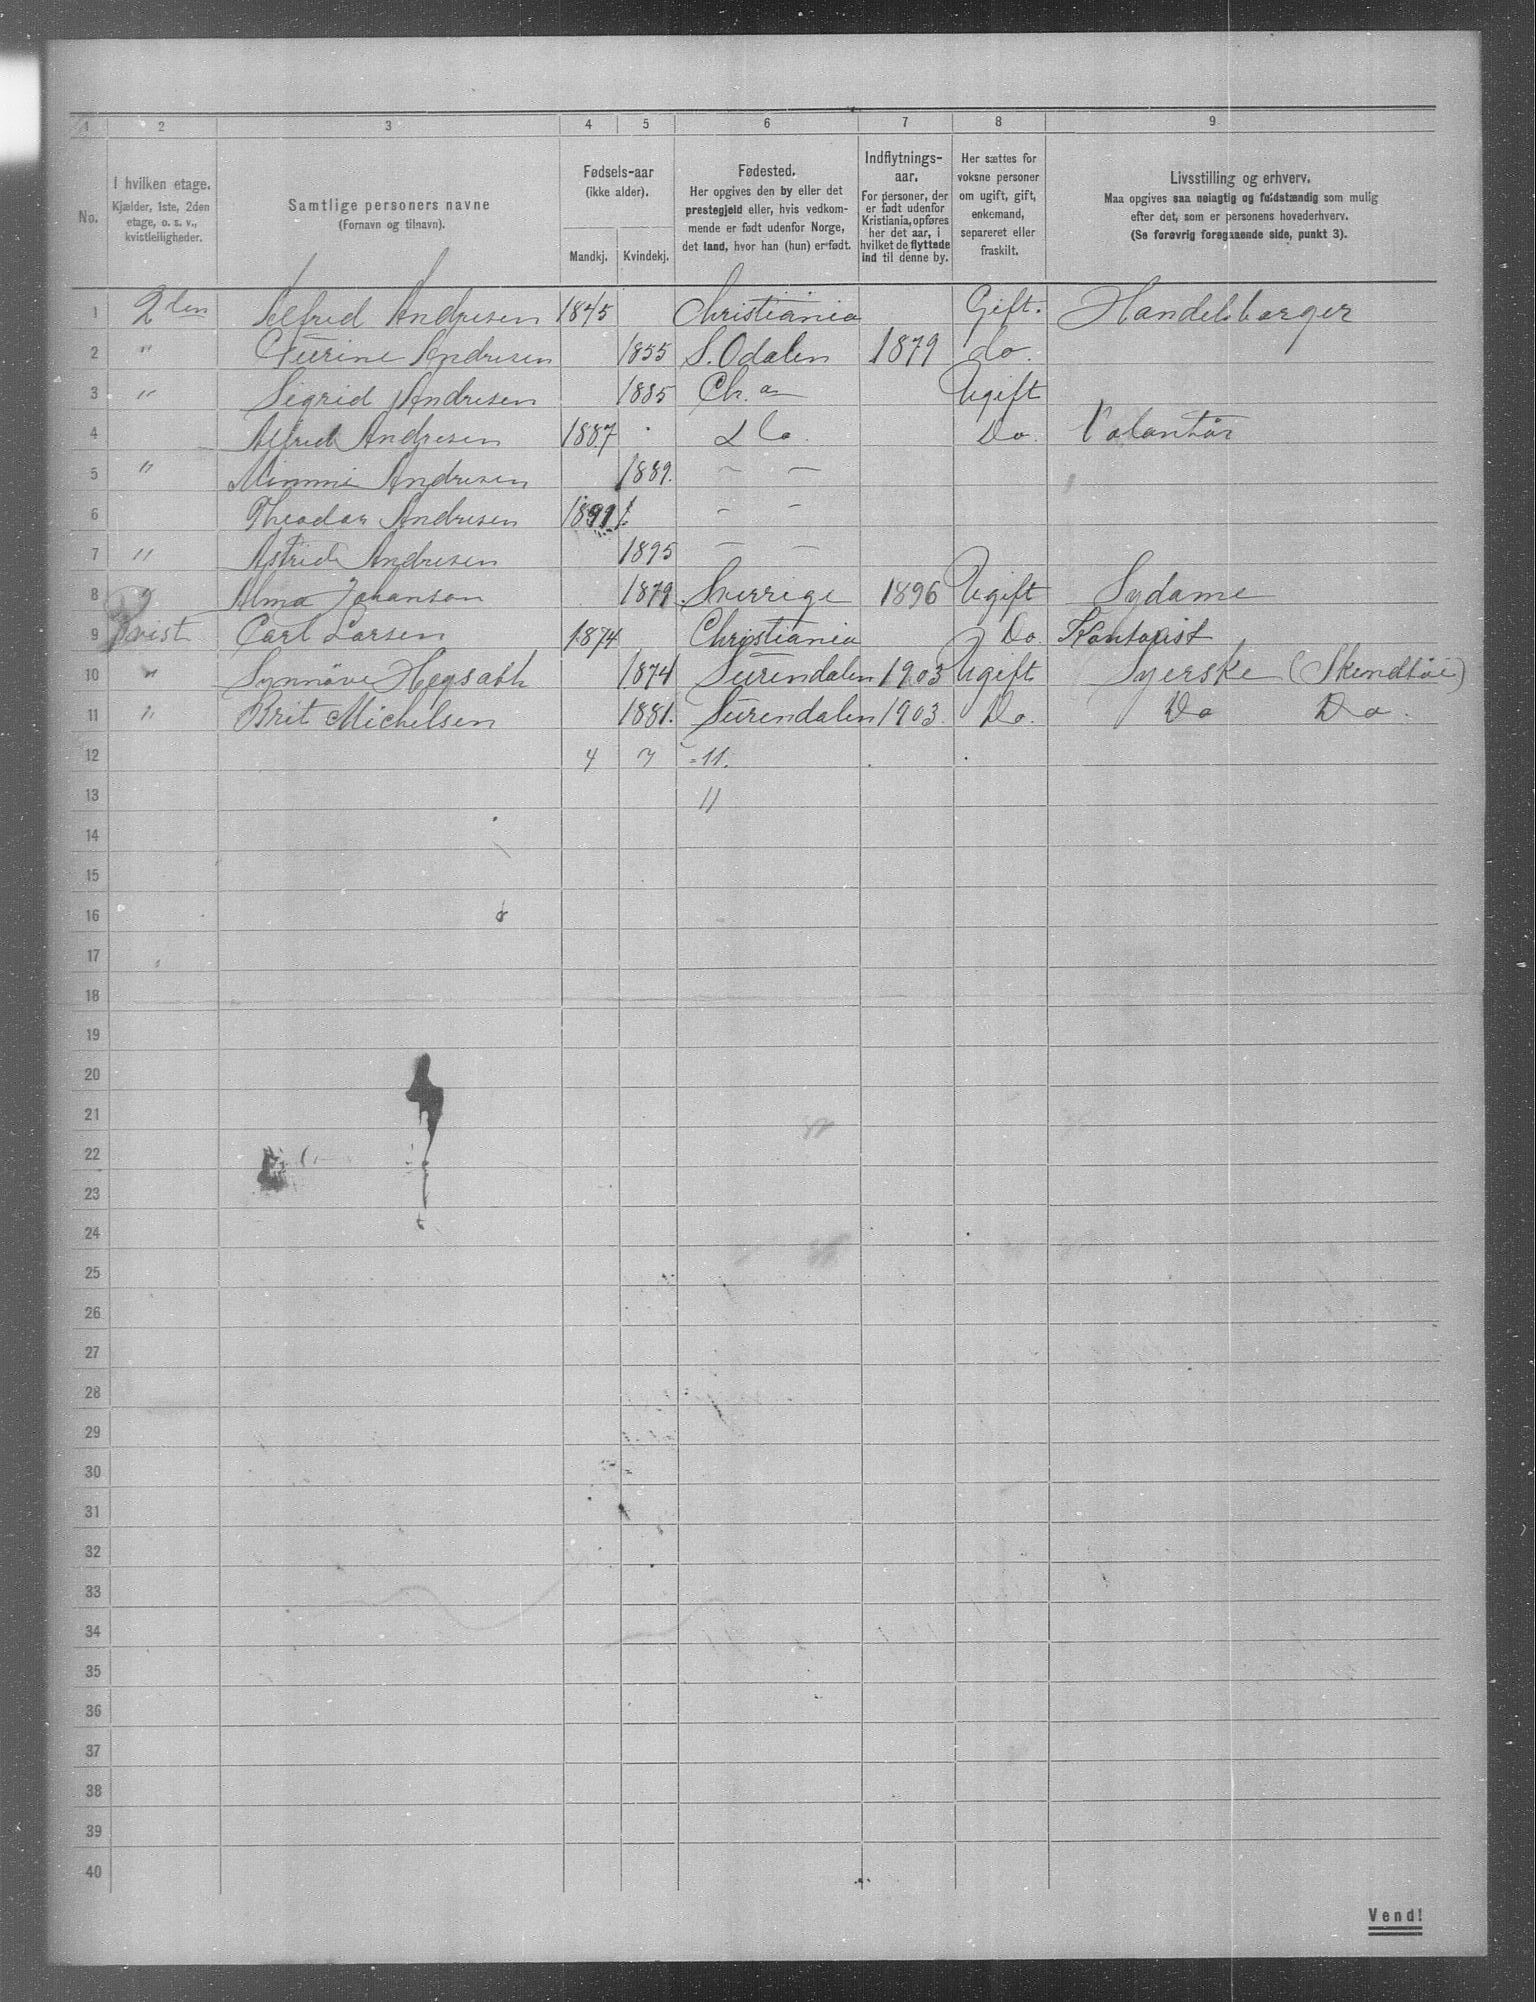 1 2 3 4 5 6 7 8 9
No.
I hvilken etage.
Kjælder, 1ste, 2den
etage, o. s. v.,
kvistleiligheder.
Samtlige personers navne
(Fornavn og tilnavn).
Fødsels-aar
(ikke alder).
Mandkj. Kvindekj.
Fødested.
Her opgives den by eller det
prestegjeld eller, hvis vedkom-
mende er født udenfor Norge,
det land, hvor han (hun) er født.
Indflytnings-
aar.
For personer, der
er født udenfor
Kristiania, opføres
her det aar, i
hvilket de flyttede
ind til denne by.
Her sættes for
voksne personer
om ugift, gift,
enkemand,
separeret eller
fraskilt.
Livsstilling og erhverv.
Maa opgives saa nøiagtig og fuldstændig som mulig
efter det, som er personens hovederhverv.
(Se forøvrig foregaaende side, punkt 3).
1 2den Alfred Andresen 1845 Christiania Gift. Handelsborger
2 " Andresen 1855 S. Odalen 1879 do.
3 " Sigrid Andresen 1885 Ch.a Ugift
4 Alfred Andresen 1887 do. Do. Volontør
5 " Mimmi Andresen 1889. — —
6 Theodor Andresen 1891 - -
7 " Astrid Andresen 1895 — —
8 " Alma Johanson 1879 Sverrige 1896 Ugift Sydame
9 Kvist Carl Larsen 1874 Christiania Do. Kontorist
10 " Synnøve 1874 Surendalen 1903 Ugift Syerske
11 " Brit Michelsen 1881. Surendalen 1903 Do. Do Do.
12 4 7 = 11.
13 11
14
15
16
17
18
19
20
21
22
23
24
25
26
27
28
29
30
31
32
33
34
35
36
37
38
39
40
Vend!